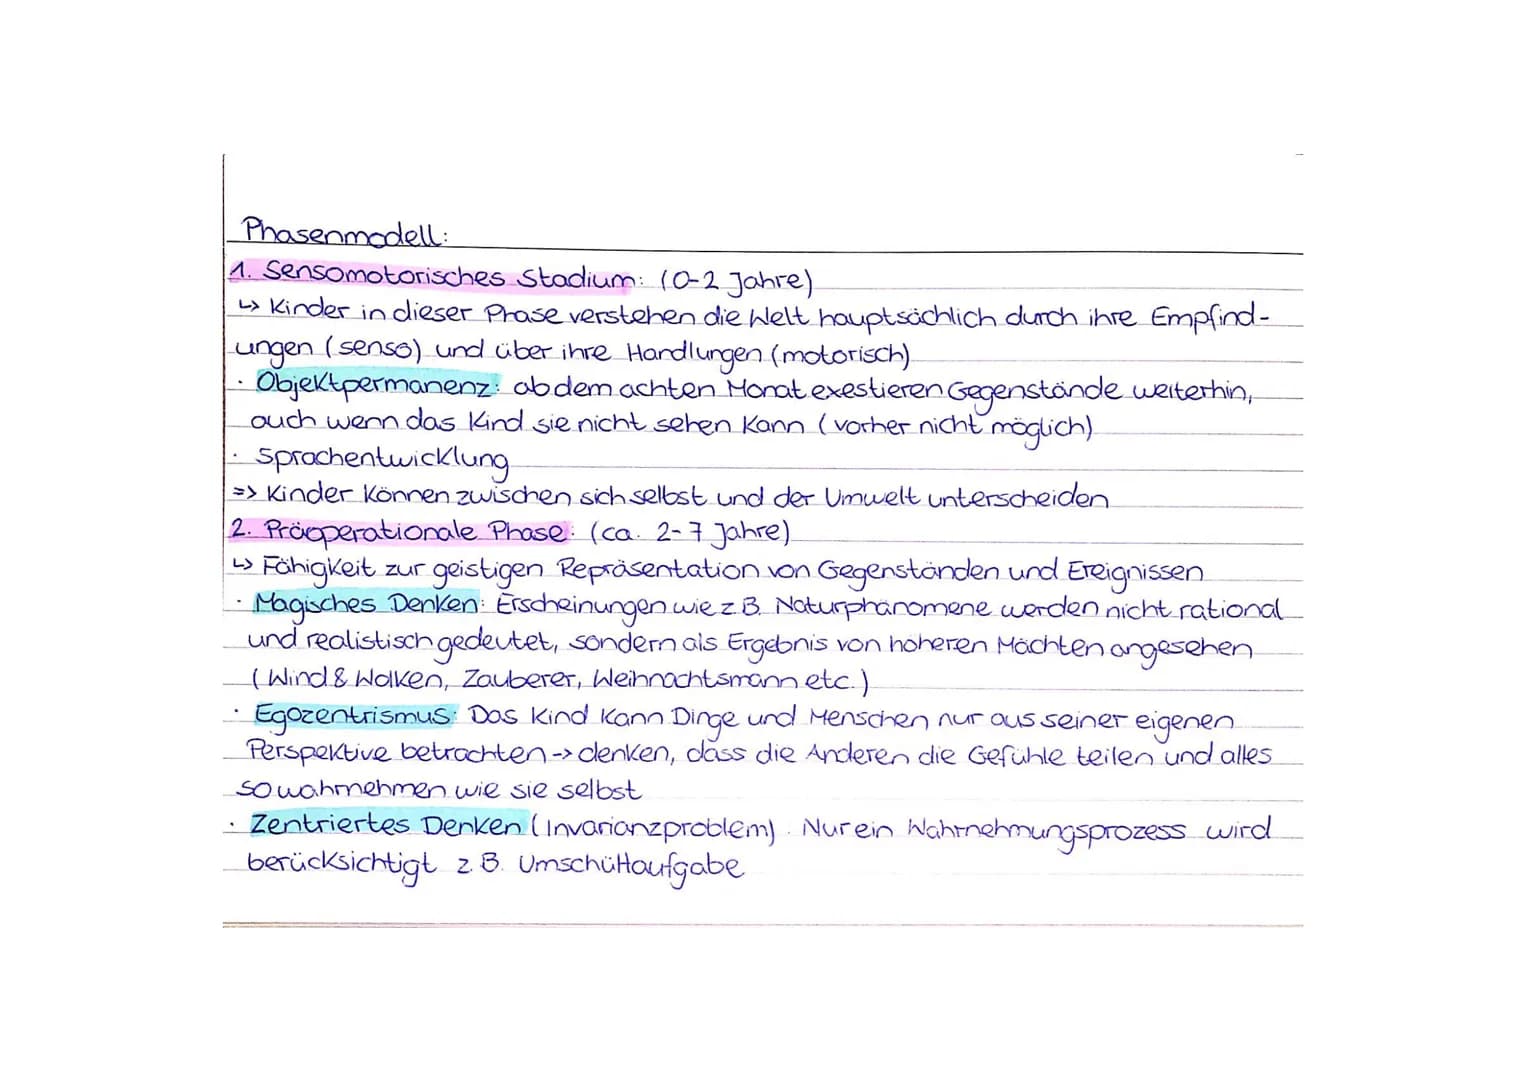 Phasenmodell:
1. Sensomotorisches Stadium: (0-2 Jahre)
↳ Kinder in dieser Phase verstehen die Welt hauptsächlich durch ihre Empfind-
ungen (senso) und über ihre Handlungen (motorisch)
· Objektpermanenz: ab dem achten Monat exestieren Gegenstände weiterhin,
auch wenn das Kind sie nicht sehen kann (vorher nicht möglich)
· Sprachentwicklung
=> Kinder können zwischen sich selbst und der Umwelt unterscheiden
2. Präoperationale Phase: (ca. 2-7 Jahre)
↳ Fähigkeit zur geistigen Repräsentation von Gegenständen und Ereignissen
· Magisches Denken: Erscheinungen wie z.B. Naturphänomene werden nicht rational
und realistisch gedeutet, sondern als Ergebnis von höheren Mächten angesehen
(Wind & Wolken, Zauberer, Weihnachtsmann etc.)
· Egozentrismus: Das Kind kann Dinge und Menschen nur aus seiner eigenen
Perspektive betrachten -> denken, dass die Anderen die Gefühle teilen und alles
so wahrnehmen wie sie selbst
· Zentriertes Denken (Invarianzproblem). Nur ein Wahrnehmungsprozess wird
berücksichtigt z.B. Umschüttaufgabe